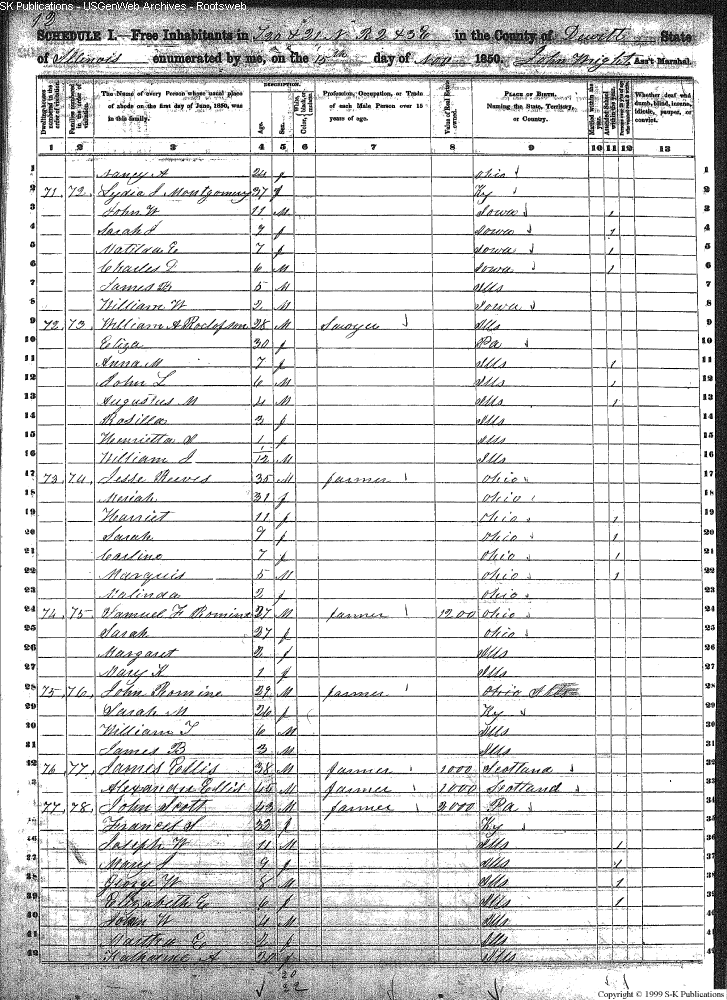 SK Publications - USGenWeb Archives - Rootsweb
12
SCHEDULE I.—Free Inhabitants in T20 & 21 N R 2 & 3 E in the County of Dewitt State
of Illinois enumerated by me, on the 15th day of Nov 1850. John Wright, Ass't Marshal.
DESCRIPTION.
Dwelling-houses numbered in the order of visitation.
Families numbered in the order of visitation.
The Name of every Person whose usual place of abode on the first day of June, 1850, was in this family.
Age.
Sex.
Color, White, black, or mulatto.
Profession, Occupation, or Trade of each Male Person over 15 years of age.
Value of Real Estate owned.
PLACE OF BIRTH. Naming the State, Territory, or Country.
Married within the year.
Attended School within the year.
Whether deaf and dumb, blind, insane, idiotic, pauper, or convict.
1 2 3 4 5 6 7 8 9 10 11 12 13
1 Nancy A 24 f Ohio 1
2 71 72 Lydia J Montgomery 37 f Ky 2
3 John W 11 M Iowa 1 3
4 Sarah J 9 f Iowa 1 4
5 Matilda E 7 f Iowa 1 5
6 Charles D 6 M Iowa 1 6
7 James 5 M Ills 7
8 William W 2 M Iowa 8
9 72 73 William A Rodefson 28 M Sawyer Ills 9
10 Eliza 30 f Pa 10
11 Anna M 7 f Ills 1 11
12 John L 6 M Ills 1 12
13 Augustus M 4 M Ills 1 13
14 Rosilla 3 f Ills 14
15 Henrietta S 1 f Ills 15
16 William J 1/12 M Ills 16
17 73 74 Jesse Reeves 35 M farmer Ohio 17
18 Meriah 31 f Ohio 18
19 Harriet 11 f Ohio 1 19
20 Sarah 9 f Ohio 1 20
21 Carline 7 f Ohio 1 21
22 Marquis 5 M Ohio 1 22
23 Malinda 2 f Ohio 23
24 74 75 Samuel F Romine 27 M farmer 1200 Ohio 24
25 Sarah 27 f Ohio 25
26 Margaret 2 f Ills 26
27 Mary K 1 f Ills 27
28 75 76 John Romine 29 M farmer Ohio 28
29 Sarah M 26 f Ky 29
30 William T 6 M Ills 30
31 James B 3 M Ills 31
32 76 77 James Ellis 38 M farmer 1000 Scotland 32
33 Alexander Ellis 45 M farmer 1000 Scotland 33
34 77 78 John Scott 43 M farmer 2000 Pa 34
35 Frances S 32 f Ky 35
36 Joseph W 11 M Ills 1 36
37 Mary J 9 f Ills 1 37
38 George W 8 M Ills 1 38
39 Elizabeth E 6 f Ills 1 39
40 John W 4 M Ills 40
41 Martha E 2 f Ills 41
42 Katharine A 30 f Ills 42
20
22
Copyright © 1999 S-K Publications